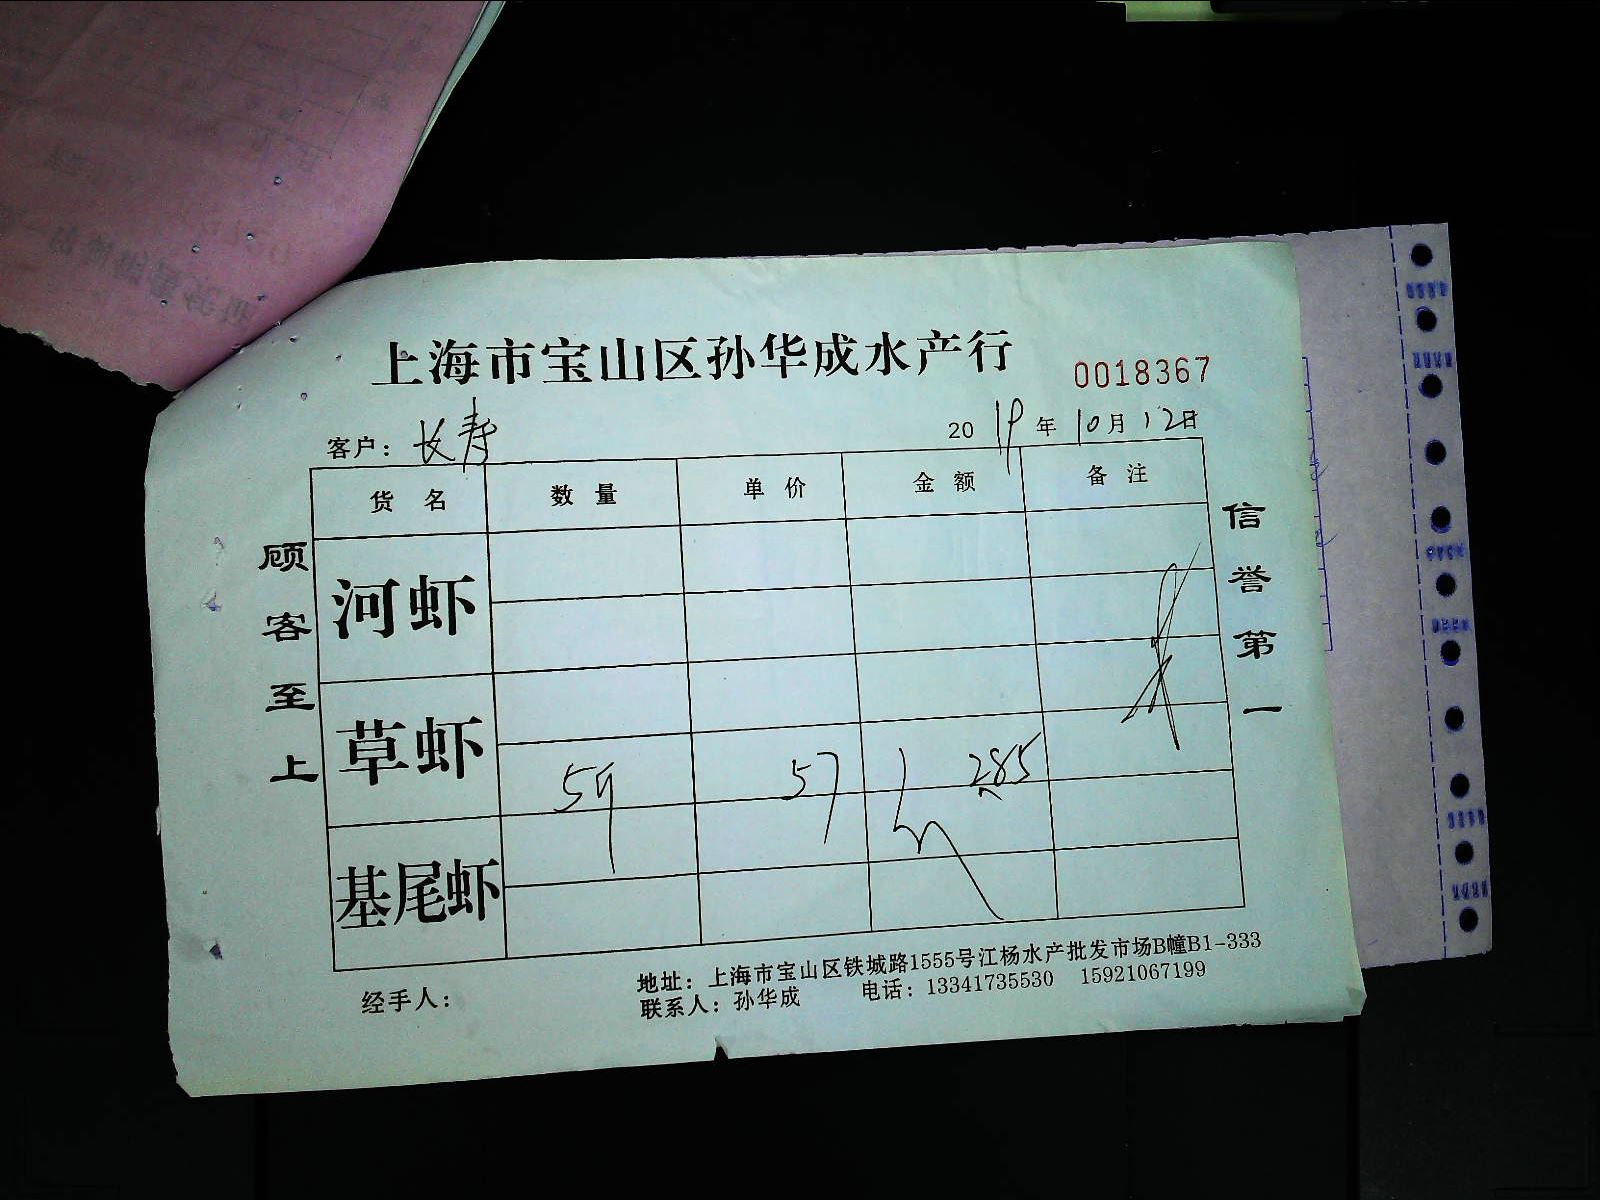 上海市宝山区孙华成水产行
0018367
客户：长寿
2019年10月12日
货名 数量 单价 金额 备注
河虾
草虾
5斤 57 285
基尾虾
顾客至上
信誉第一
地址：上海市宝山区铁城路1555号江杨水产批发市场B幢B1-333
经手人：
联系人：孙华成 电话：13341735530 15921067199